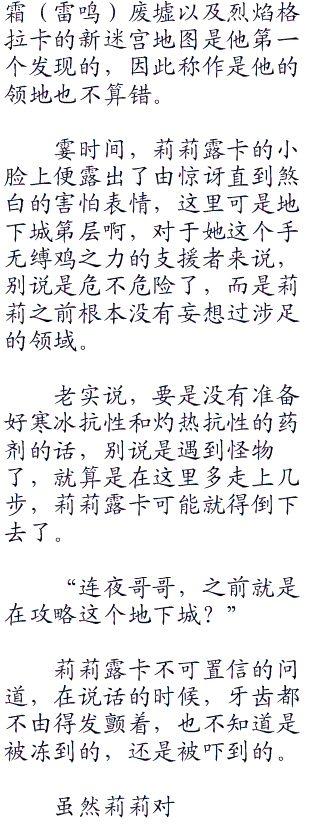 霜（雷鸣）废墟以及烈焰格
拉卡的新迷宫地图是他第一
个发现的，因此称作是他的
领地也不算错。
霎时间，莉莉露卡的小
脸上便露出了由惊讶直到煞
白的害怕表情，这里可是地
下城第层啊，对于她这个手
无缚鸡之力的支援者来说，
别说是危不危险了，而是莉
莉之前根本没有妄想过涉足
的领域。
老实说，要是没有准备
好寒冰抗性和灼热抗性的药
剂的话，别说是遇到怪物
了，就算是在这里多走上几
步，莉莉露卡可能就得倒下
去了。
“连夜哥哥，之前就是
在攻略这个地下城？”
莉莉露卡不可置信的问
道，在说话的时候，牙齿都
不由得发颤着，也不知道是
被冻到的，还是被吓到的。
虽然莉莉对